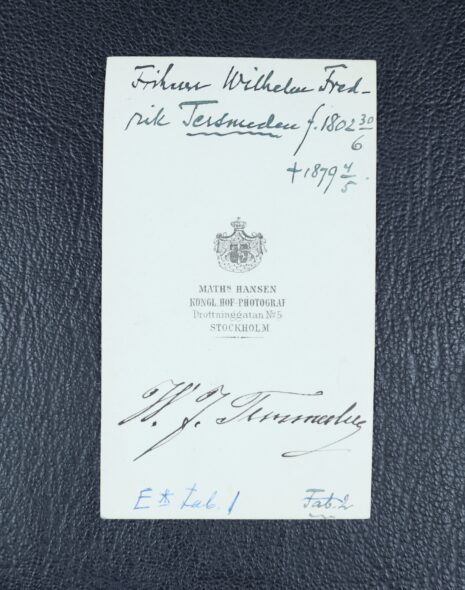 Wilhelm Fred-
rik Tersmeden f. 1802 30/6
† 1879 4/5.
MATHS HANSEN
KONGL. HOF-PHOTOGRAF
Drottninggatan No 5
STOCKHOLM
W. F. Tersmeden
E* tab. 1
Tab. 2